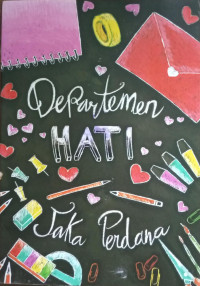 Departemen
HATI
Jaka Perdana